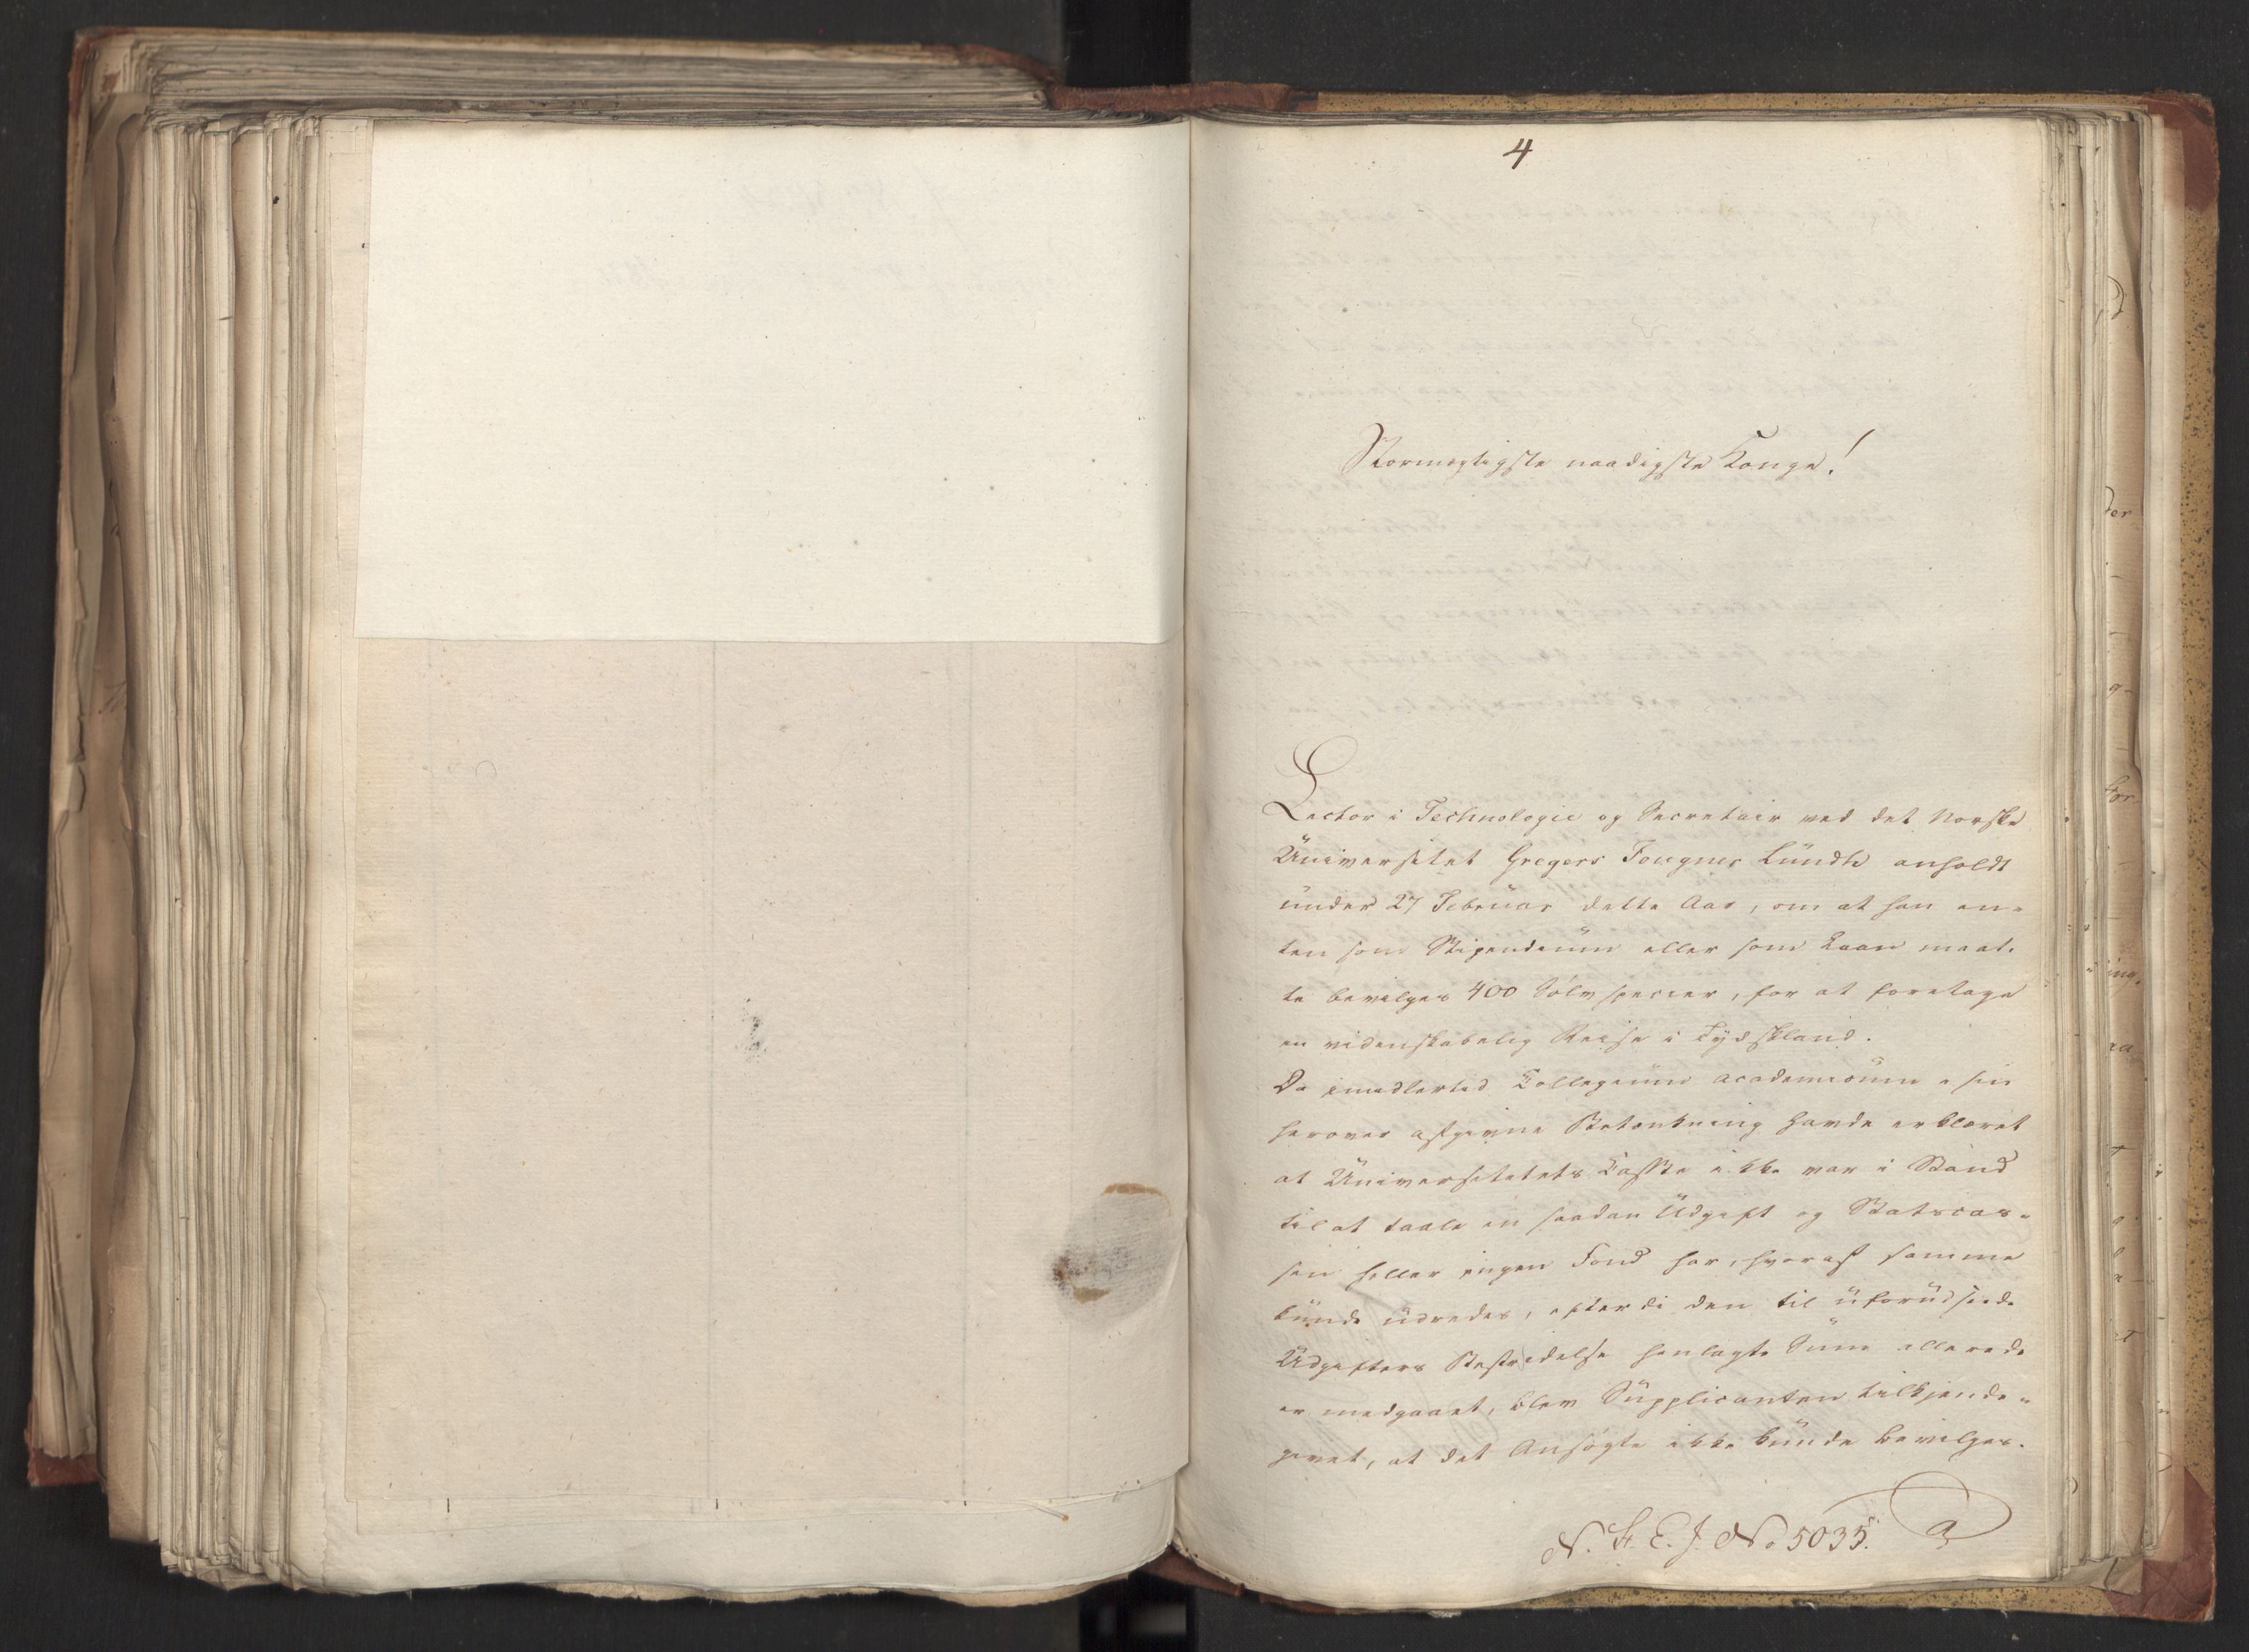 4
Stormægtigste naadigste Konge!
Lector i Technologie og Secretair ved det Norske
Universitet Gregers Fougner Lundh anholdt
under 27 Februar dette Aar, om at han en-
ten som Stipendium eller som Laan maat-
te bevilges 400 Sølv specier, for at foretage
en videnskabelig Reise i Tydskland.
Da imidlertid Collegium academicum i sin
herover afgivne Betænkning havde erklæret
at Universitetets Casse ikke var i Stand
til at taale en saadan Udgift og Statscas-
sen heller ingen Fond har, hvoraf samme
kunde udredes, efterdi den til uforudseede
Udgifters Bestridelse henlagte Sum allerede
er medgaaet, blev Supplicanten tilkjende-
givet, at det Ansøgte ikke kunde bevilges.
No 5035.